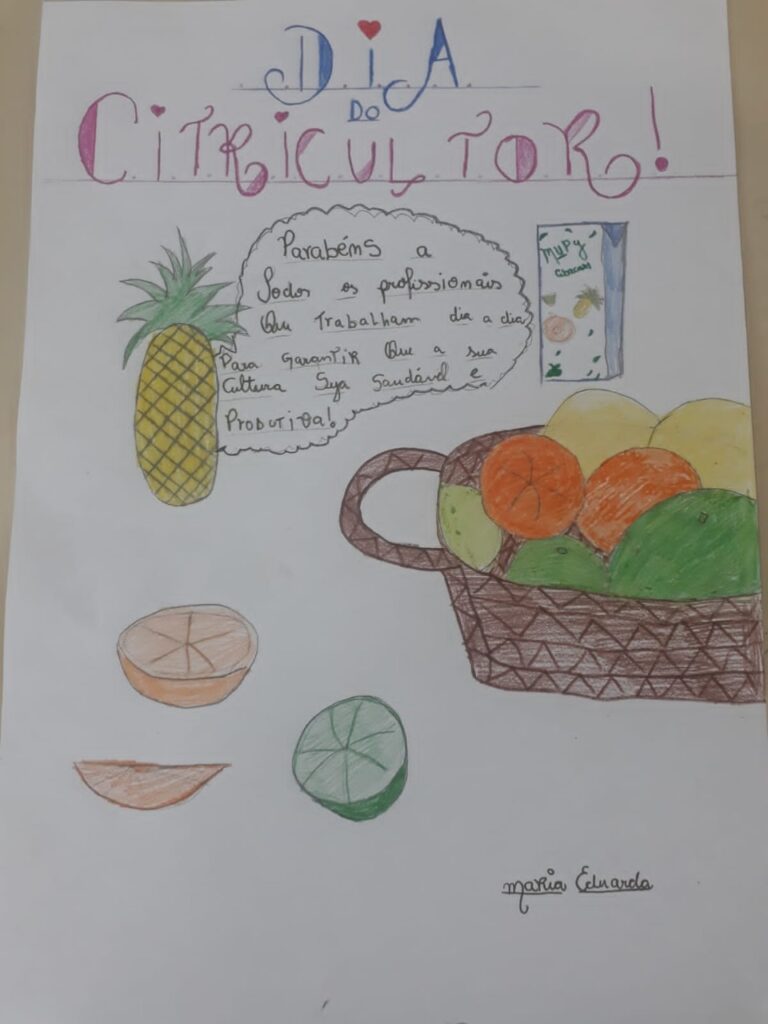 DiA
DO
CiTRiCULTOR!
Parabéns a
Todos os profissionais
Que Trabalham dia a dia
Para GaranTiR Que a sua
Cultura Seja Saudável e
ProduTiva!
MuPy
maria Eduarda